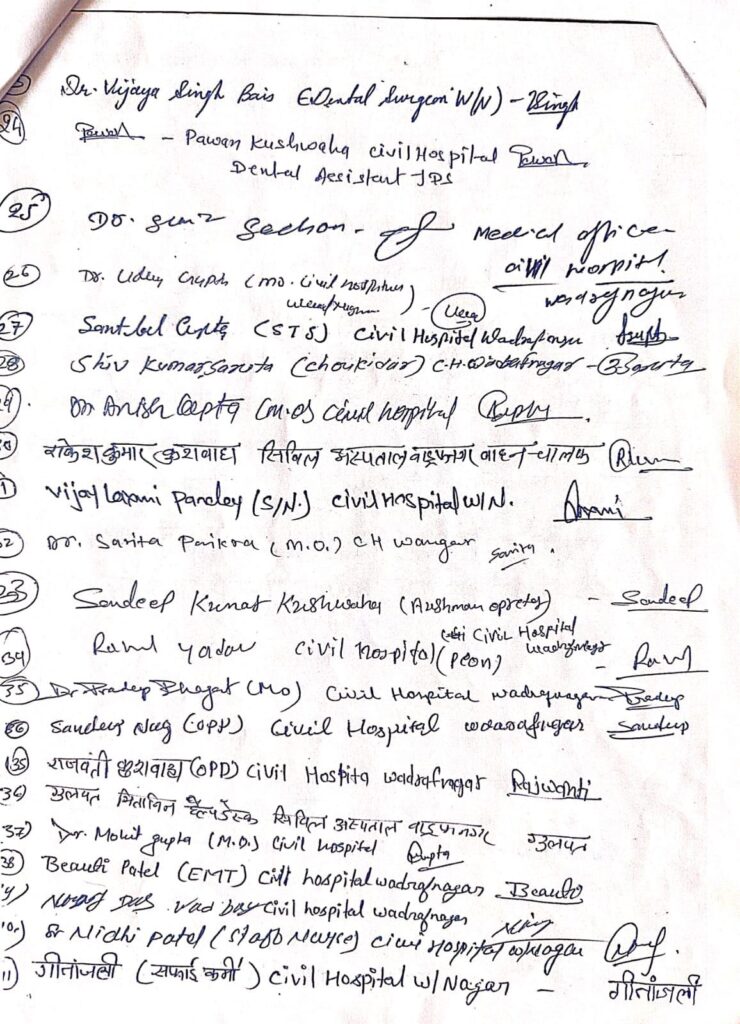 Dr. Vijaya Singh Bais (Dental Surgeon W/N) - Singh
24 Pawan - Pawan Kushwaha civil Hospital Pawan
Dental Assistant JDS
25 Dr. Sachan - Medical officer
civil hospital
wadrafnagar
26 Dr. Uday Gupta (Mo. Civil Hospital
27 Gupta (STS) Civil Hospital Wadrafnagar Gupta
28 Shiv Kumar (Choukidar) C.H. Wadrafnagar -
Dr Anish Gupta (M.O) civil hospital
राकेश कुमार कुशवाहा सिविल अस्पताल वाड्रफनगर वाहन-चालक
Vijay Laxmi Pandey (S/N.) Civil Hospital W/N. Laxmi
32 Dr. Sarita Paikra (M.O.) CH Wnagar Sarita.
33 Sandeep Kumar Kushwaha (Aushman opretor) - Sandeep
34 Yadav Civil Hospital (Peon) Civil Hospital Wadrafnagar -
35 Dr Pradeep Bhagat (Mo) Civil Hospital Wadrafnagar Pradeep
36 Sandeep Nag (OPD) Civil Hospital wadrafnagar Sandeep
35 राजवंती कुशवाहा (OPD) Civil Hospita wadrafnagar Rajwanti
36) मितानिन हेल्पडेस्क सिविल अस्पताल वाड्रफनगर
37) Dr. Mohit gupta (M.O.) Civil hospital Gupta
38 Beauti Patel (EMT) Civil hospital wadrafnagar Beauti
Das civil hospital wadrafnagar
Nidhi Patel (Staff Nurse) Civil Hospital
गीतांजली (सफाई कर्मी) Civil Hospital W/Nagar - गीतांजली